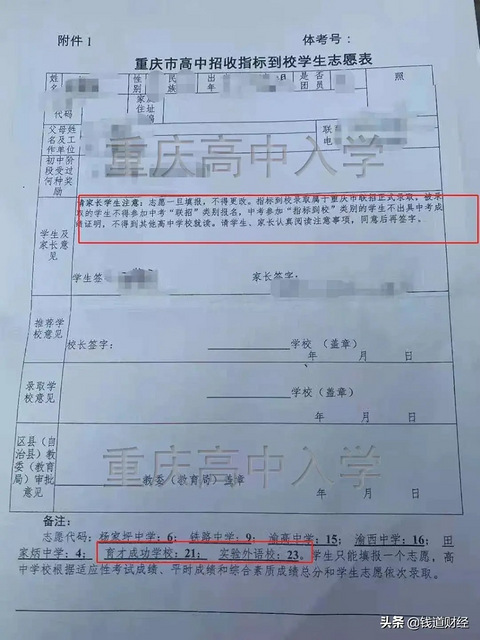 附件1
体考号：
重庆市高中招收指标到校学生志愿表
姓名
性别
民族
出年
是否团员
照
代码
家庭住址
父母姓名及工作单位
联
电
初中阶段受过何种奖励
重庆高中入学
请家长学生注意：志愿一旦填报，不得更改。指标到校录取属于重庆市联招正式录取，被录
取的学生不得参加中考“联招”类别报名，中考参加“指标到校”类别的学生不出具中考成
绩证明，不得到其他高中学校就读。请学生、家长认真阅读注意事项，同意后再签字。
学生及家长意见
学生签
家长签字：
推荐学校意见
校长签字：
学校（盖章）
年 月 日
录取学校意见
学校（盖章）
年 月 日
区县（自治县）教委（教育局）审批意见
重庆高中入学
教委（教育局）盖章
年 月 日
备注：
志愿代码：杨家坪中学：6；铁路中学：9；渝高中学：15；渝西中学：16；田
家炳中学：4；育才成功学校：21；实验外语校：23。学生只能填报一个志愿，高
中学校根据适应性考试成绩、平时成绩和综合素质成绩总分和学生志愿依次录取。
头条 @钱道财经